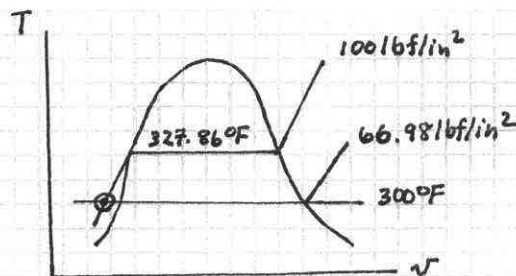 T
100 lbf/in²
327.86°F
66.98 lbf/in²
300°F
v